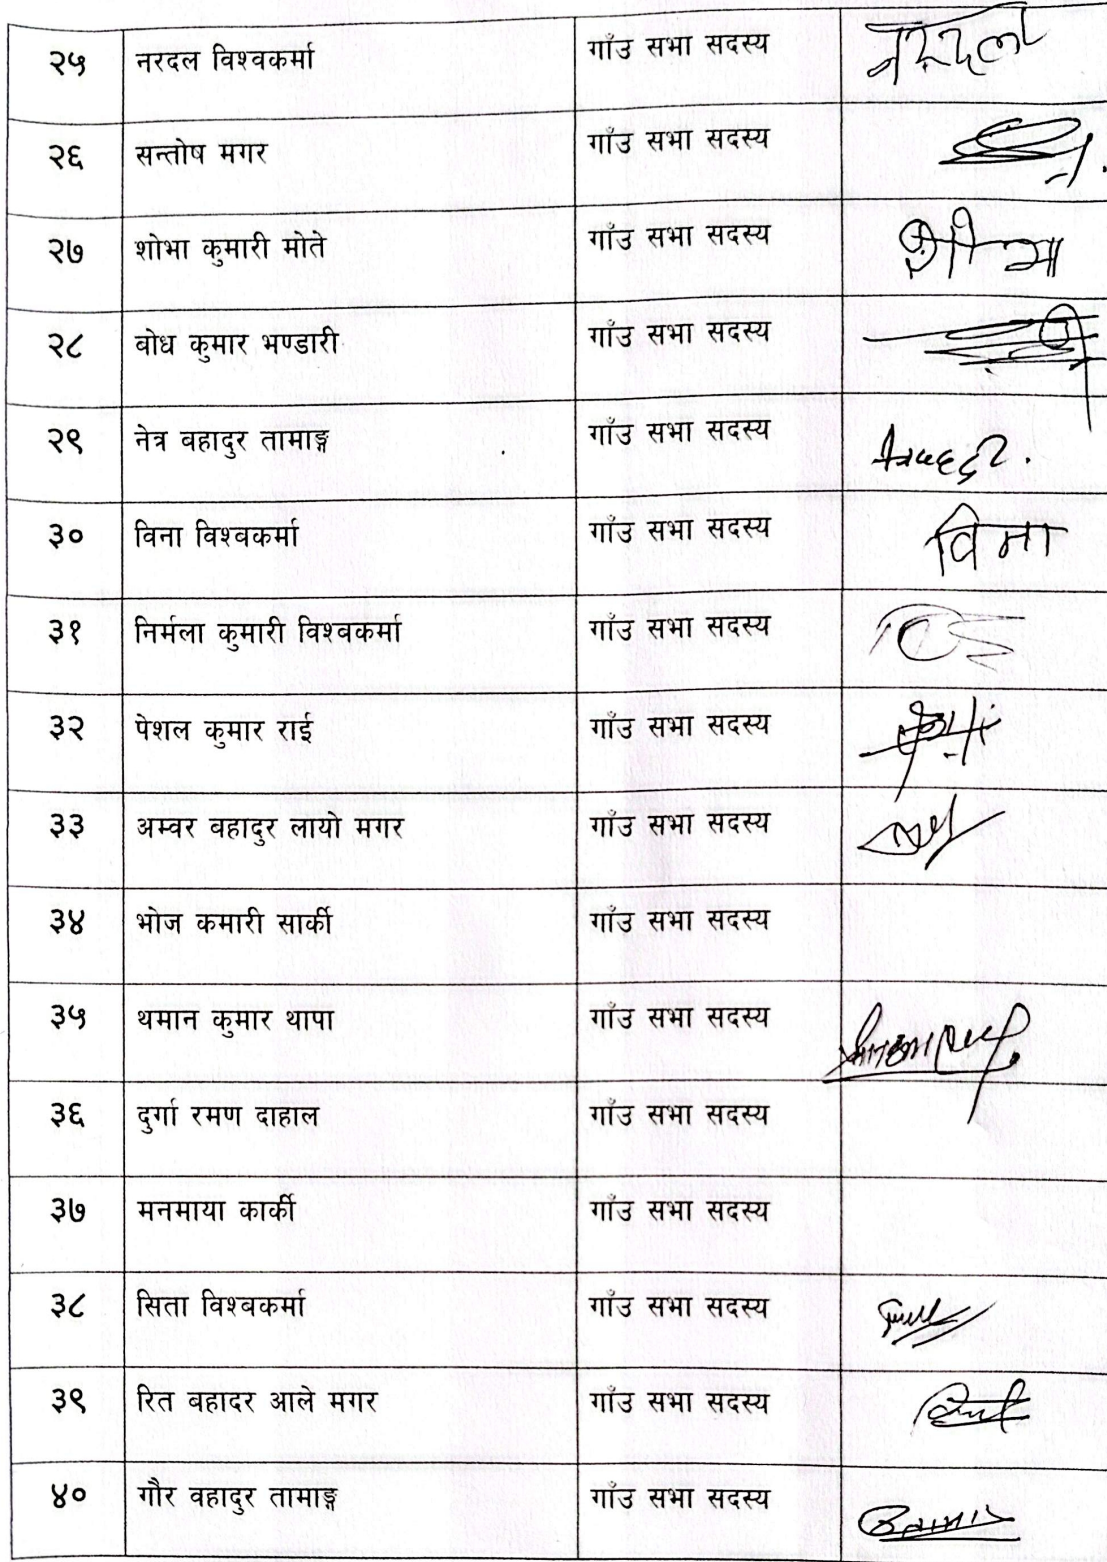 २५ नरदल विश्वकर्मा गाँउ सभा सदस्य नरदल
२६ सन्तोष मगर गाँउ सभा सदस्य
२७ शोभा कुमारी मोते गाँउ सभा सदस्य शोभा
२८ वोध कुमार भण्डारी गाँउ सभा सदस्य
२९ नेत्र वहादुर तामाङ्ग गाँउ सभा सदस्य
३० विना विश्वकर्मा गाँउ सभा सदस्य विना
३१ निर्मला कुमारी विश्वकर्मा गाँउ सभा सदस्य
३२ पेशल कुमार राई गाँउ सभा सदस्य
३३ अम्वर वहादुर लायो मगर गाँउ सभा सदस्य
३४ भोज कमारी सार्की गाँउ सभा सदस्य
३५ थमान कुमार थापा गाँउ सभा सदस्य
३६ दुर्गा रमण दाहाल गाँउ सभा सदस्य
३७ मनमाया कार्की गाँउ सभा सदस्य
३८ सिता विश्वकर्मा गाँउ सभा सदस्य
३९ रित बहादर आले मगर गाँउ सभा सदस्य
४० गौर वहादुर तामाङ्ग गाँउ सभा सदस्य